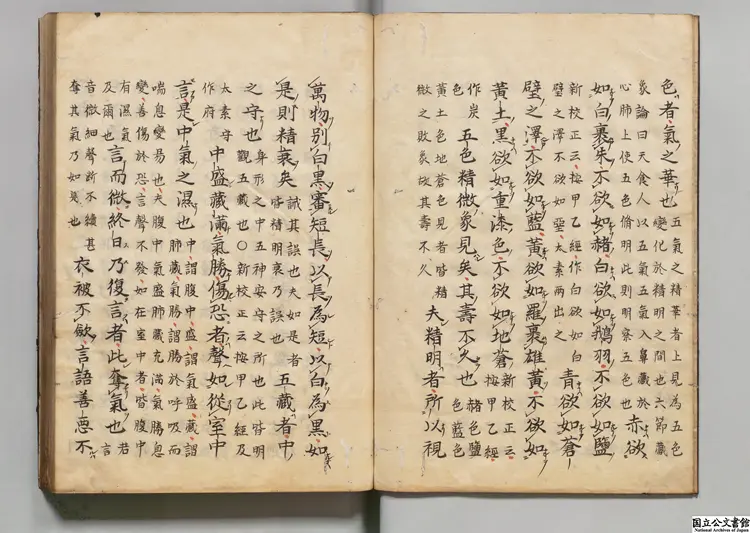 色者氣之華也
五氣之精華者上見為五色
變化於精明之間也六節藏
象論曰天食人以五氣五氣入鼻藏於
心肺上使五色脩明此則明察五色也
赤欲
如白裹朱不欲如赭白欲如鵝羽不欲如鹽
新校正云按甲乙經作白欲如白
璧之澤不欲如堊太素兩出之
青欲如蒼
璧之澤不欲如藍黃欲如羅裹雄黃不欲如
黃土黑欲如重漆色不欲如地蒼
新校正云
按甲乙經
作炭
色
五色精微象見矣其壽不久也
赭色鹽
色藍色
黃土色地蒼色見者皆精
微之敗象故其壽不久
夫精明者所以視
萬物別白黑審短長以長為短以白為黑如
是則精衰矣
誡其誤也夫如是者
皆精明衰乃誤也
五藏者中
之守也
身形之中五神安守之所也此皆明
觀五藏也○新校正云按甲乙經及
太素守
作府
中盛藏滿氣勝傷恐者聲如從室中
言是中氣之濕也
中謂腹中盛謂氣盛藏謂
肺藏氣勝謂勝於呼吸而
喘息變易也夫腹中氣盛肺藏充滿氣勝息
變善傷於恐言聲不發如在室中者皆腹中
有濕氣
及爾也
言而微終日乃復言者此奪氣也
若
言
音微細聲所不續甚
奪其氣乃如是也
衣被不斂言語善惡不
国立公文書館
National Archives of Japan